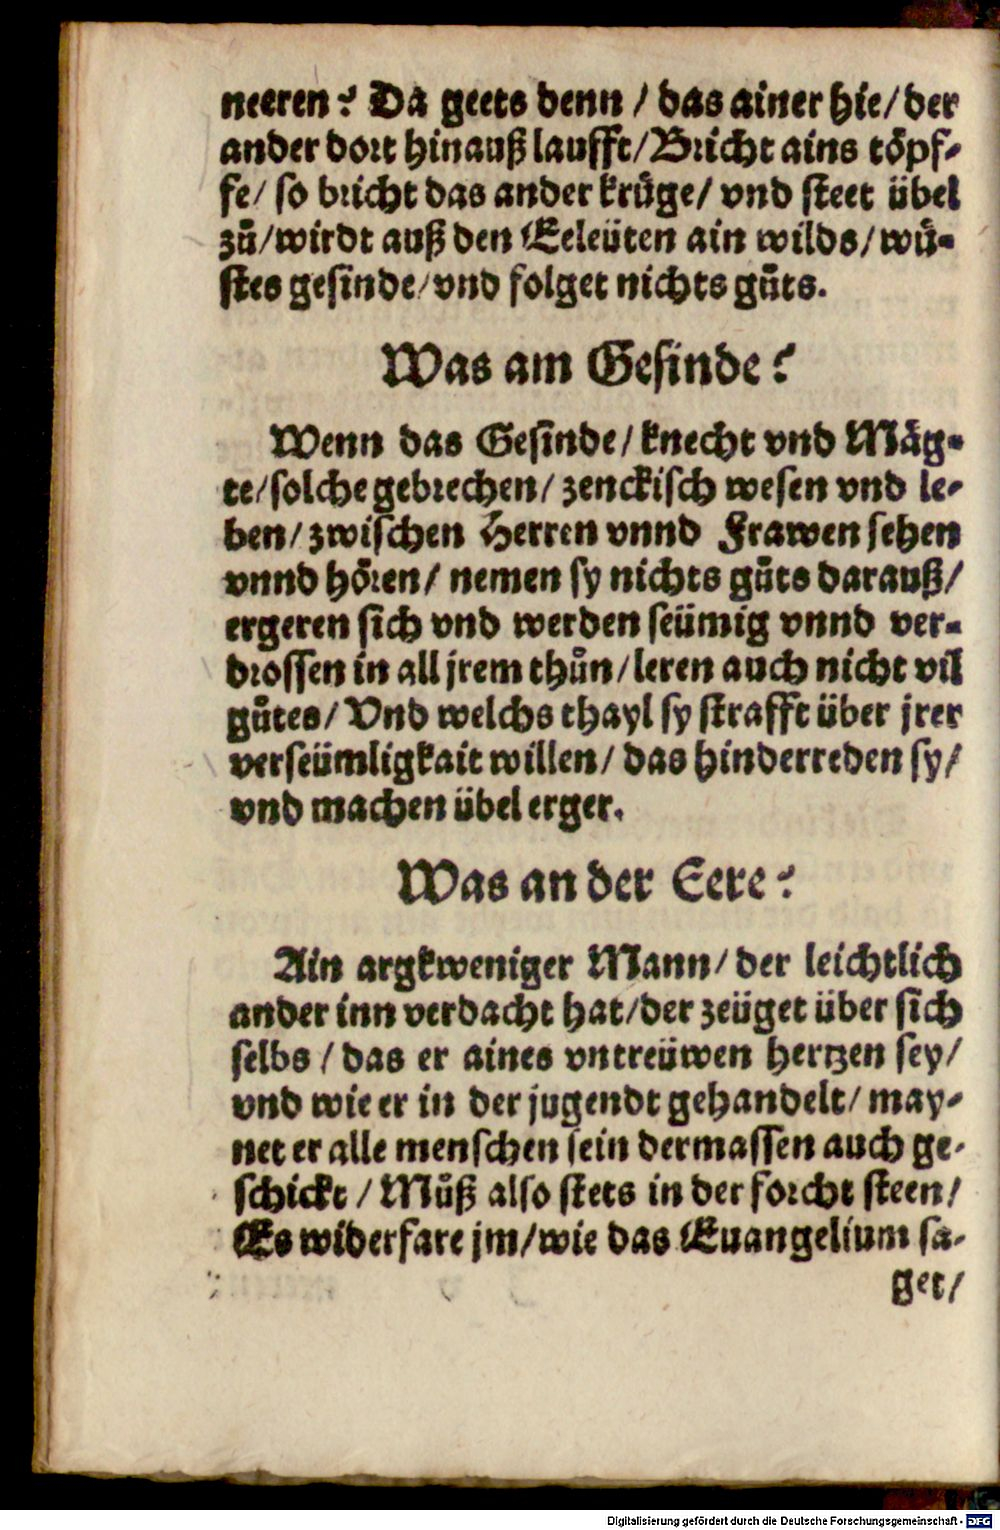 neeren? Da geets denn / das ainer hie/ der
ander dort hinauß laufft/ Bricht ains töpf-
fe/ so bricht das ander krůge/ vnd steet übel
zů/ wirdt auß den Eeleüten ain wilds/ wů-
stes gesinde/ vnd folget nichts gůts.
Was am Gesinde?
Wenn das Gesinde/ knecht vnd Mäg-
te/ solche gebrechen/ zenckisch wesen vnd le-
ben/ zwischen Herren vnnd Frawen sehen
vnnd hören/ nemen sy nichts gůts darauß/
ergeren sich vnd werden seümig vnnd ver-
drossen in all jrem thůn/ leren auch nicht vil
gůtes/ Vnd welchs thayl sy strafft über jrer
verseümligkait willen/ das hinderreden sy/
vnd machen übel erger.
Was an der Eere?
Ain argkweniger Mann/ der leichtlich
ander inn verdacht hat/ der zeüget über sich
selbs / das er aines vntreüwen hertzen sey/
vnd wie er in der jugendt gehandelt/ may-
net er alle menschen sein dermassen auch ge-
schickt / Můß also stets in der forcht steen/
Es widerfare jm/ wie das Euangelium sa-
get/
Digitalisierung gefördert durch die Deutsche Forschungsgemeinschaft - DFG